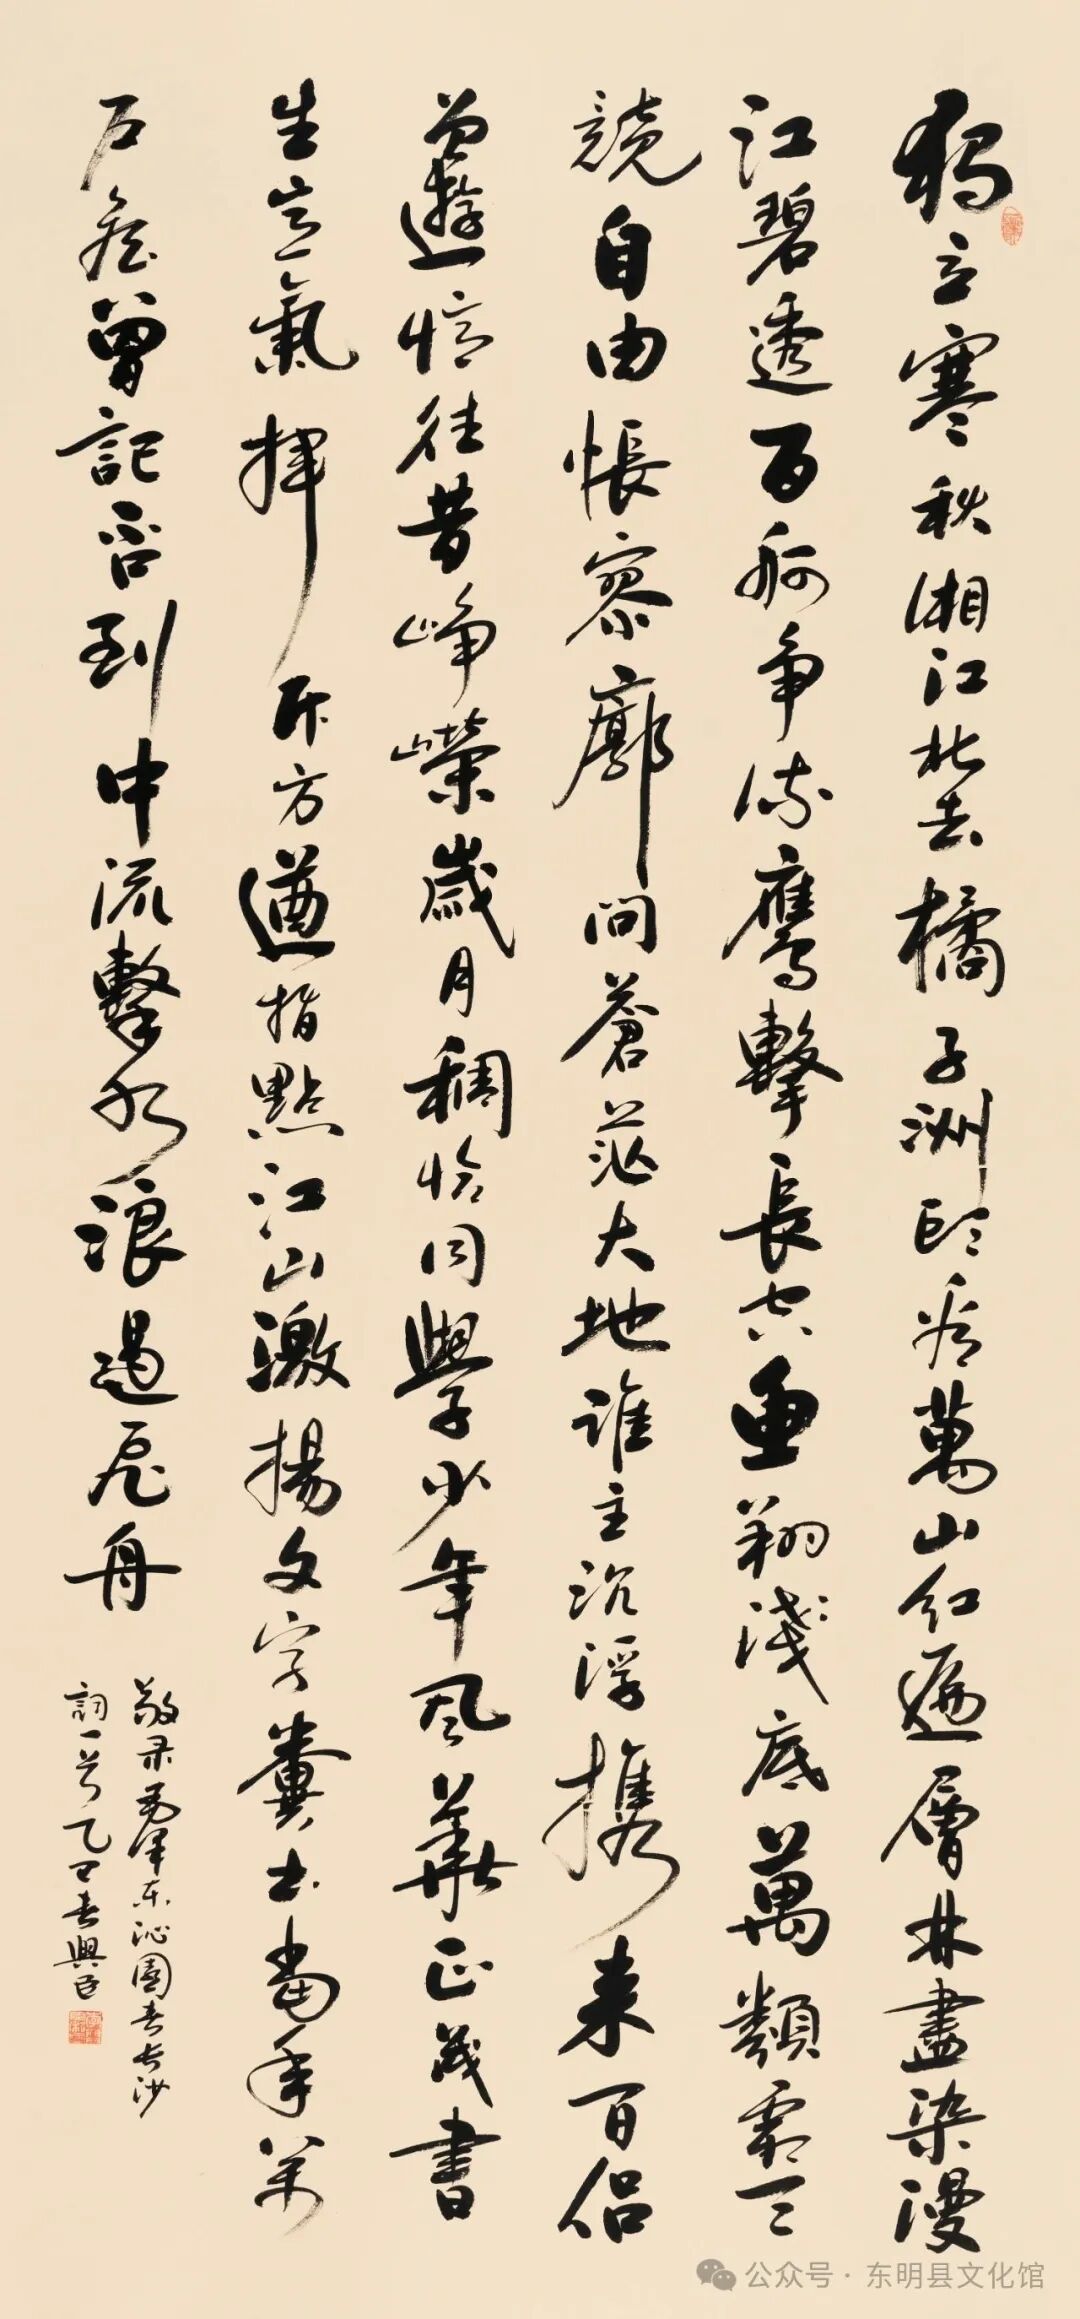 独立寒秋湘江北去橘子洲頭看萬山红遍層林盡染漫
江碧透百舸争流鷹擊長空魚翔淺底萬類霜天
競自由悵寥廓問蒼茫大地誰主沉浮携来百侣
曾遊憶往昔崢嶸歲月稠恰同學少年風華正茂書
生意氣揮斥方遒指點江山激揚文字糞土當年萬
户侯曾記否到中流擊水浪遏飛舟
敬录毛泽东沁園春长沙
詞一首乙巳春興臣
公众号·东明县文化馆